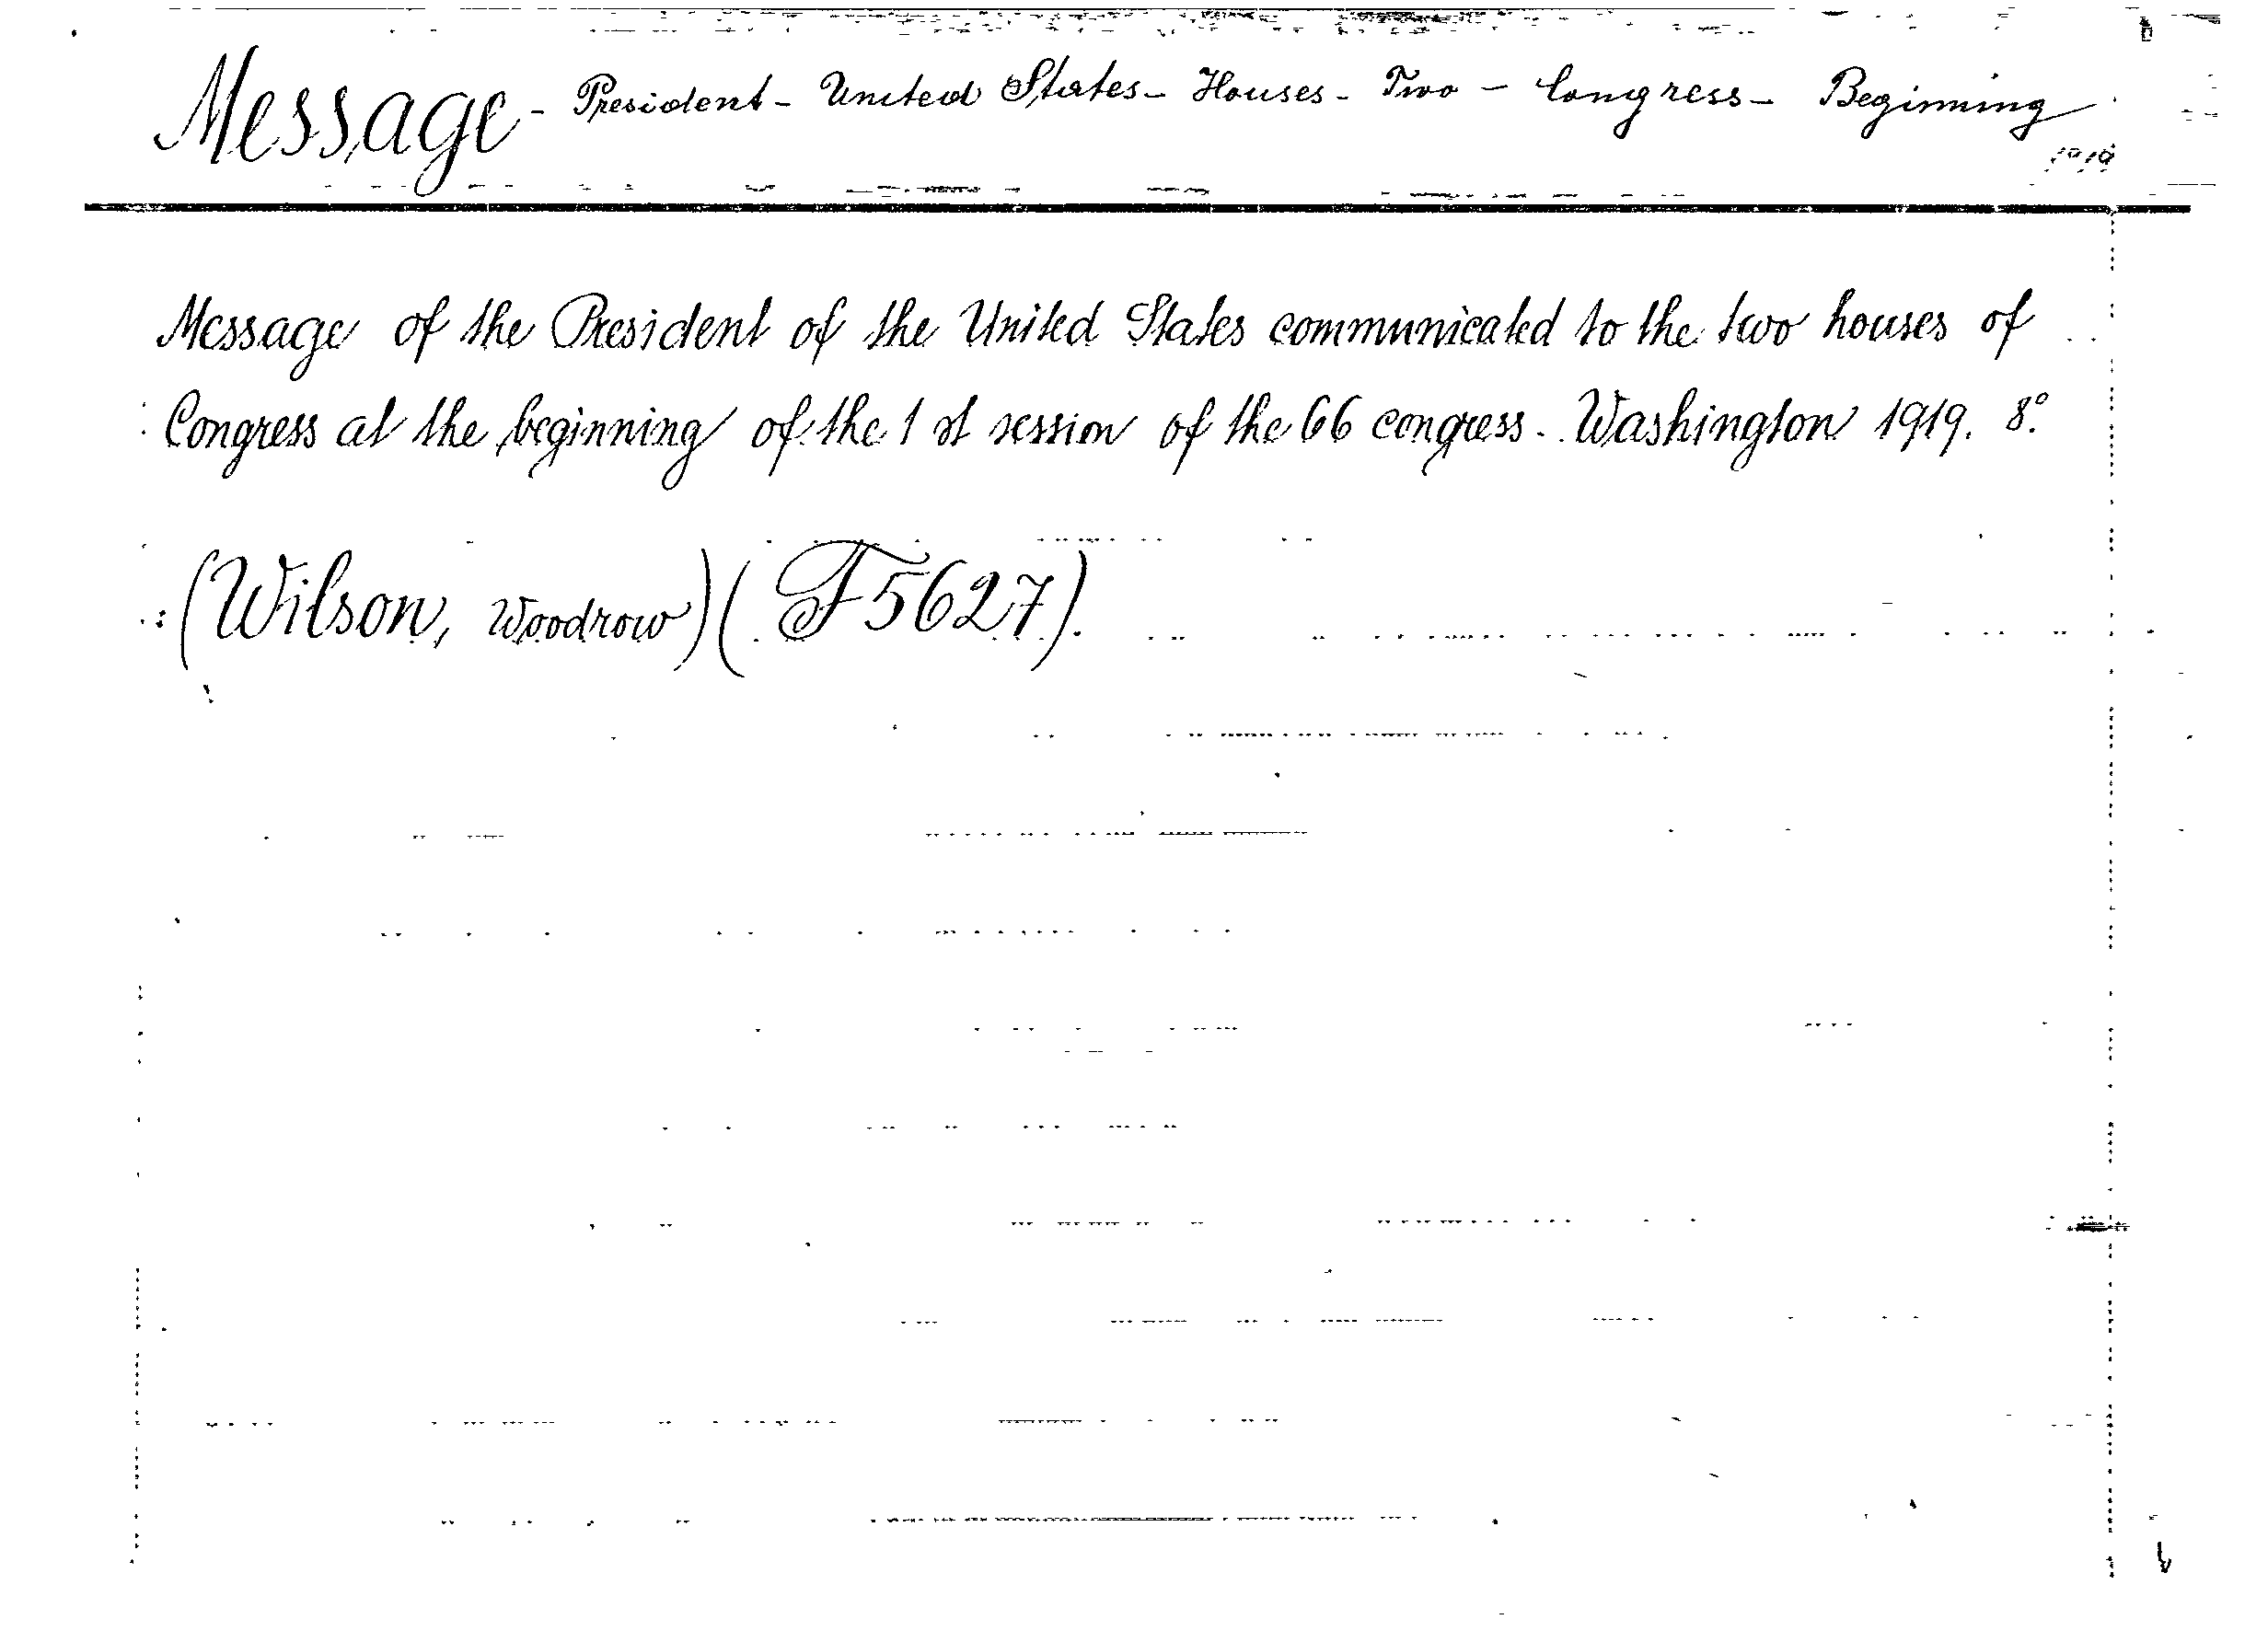 Message - President - United States - Houses - Two - Congress - Beginning
1919
Message of the President of the United States communicated to the two houses of
Congress at the beginning of the 1 st session of the 66 congress. Washington 1919. 8°.
(Wilson, Woodrow) (F5627).